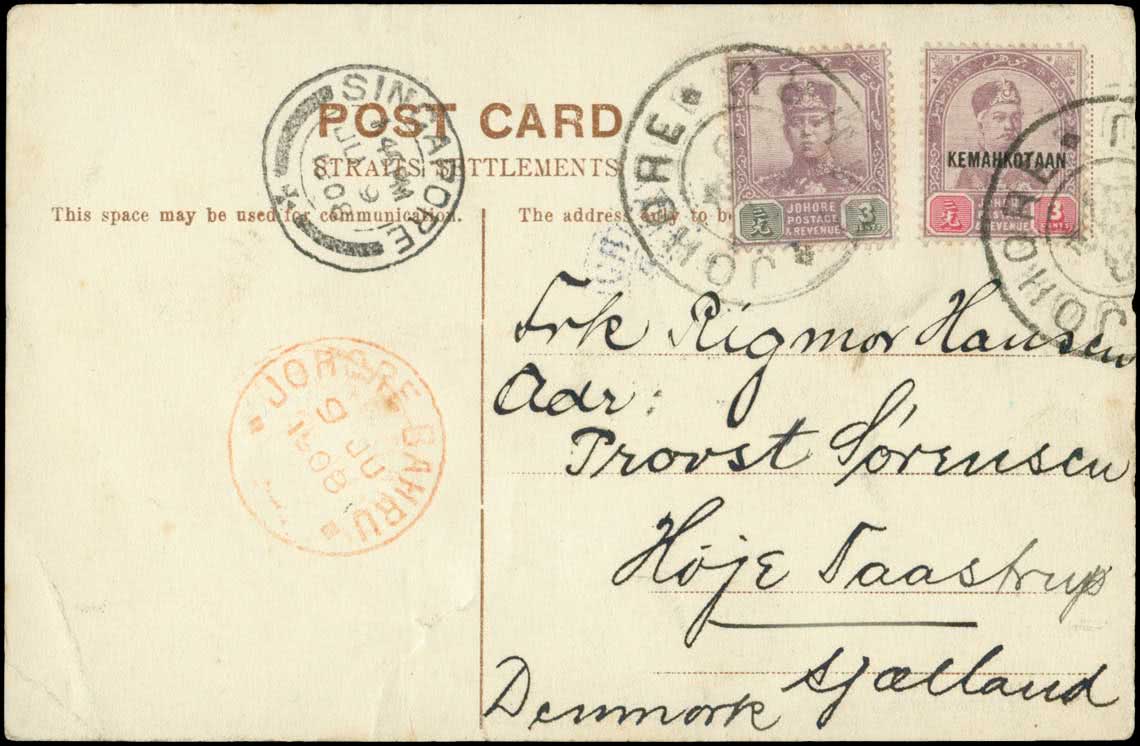 POST CARD
STRAITS SETTLEMENTS
This space may be used for communication.
The address only to be
SINGAPORE
JOHORE
JOHORE
POSTAGE
& REVENUE
3
CENTS
KEMAHKOTAAN
JOHORE
POSTAGE
& REVENUE
3
CENTS
JOHORE
JOHORE BAHRU
Frk Rigmor Hansen
Adr:
Provst Sørensen
Høje Taastrup
Sjælland
Denmark